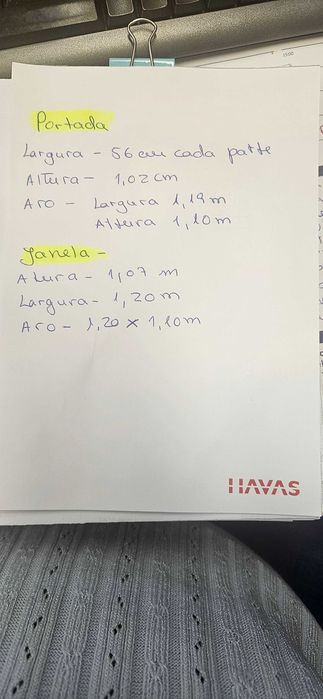 Portada
Largura - 56 cm cada parte
Altura - 1,02 cm
Aro - Largura 1,19 m
Altura 1,10 m
Janela -
Altura - 1,07 m
Largura - 1,20 m
Aro - 1,20 x 1,10 m
HAVAS